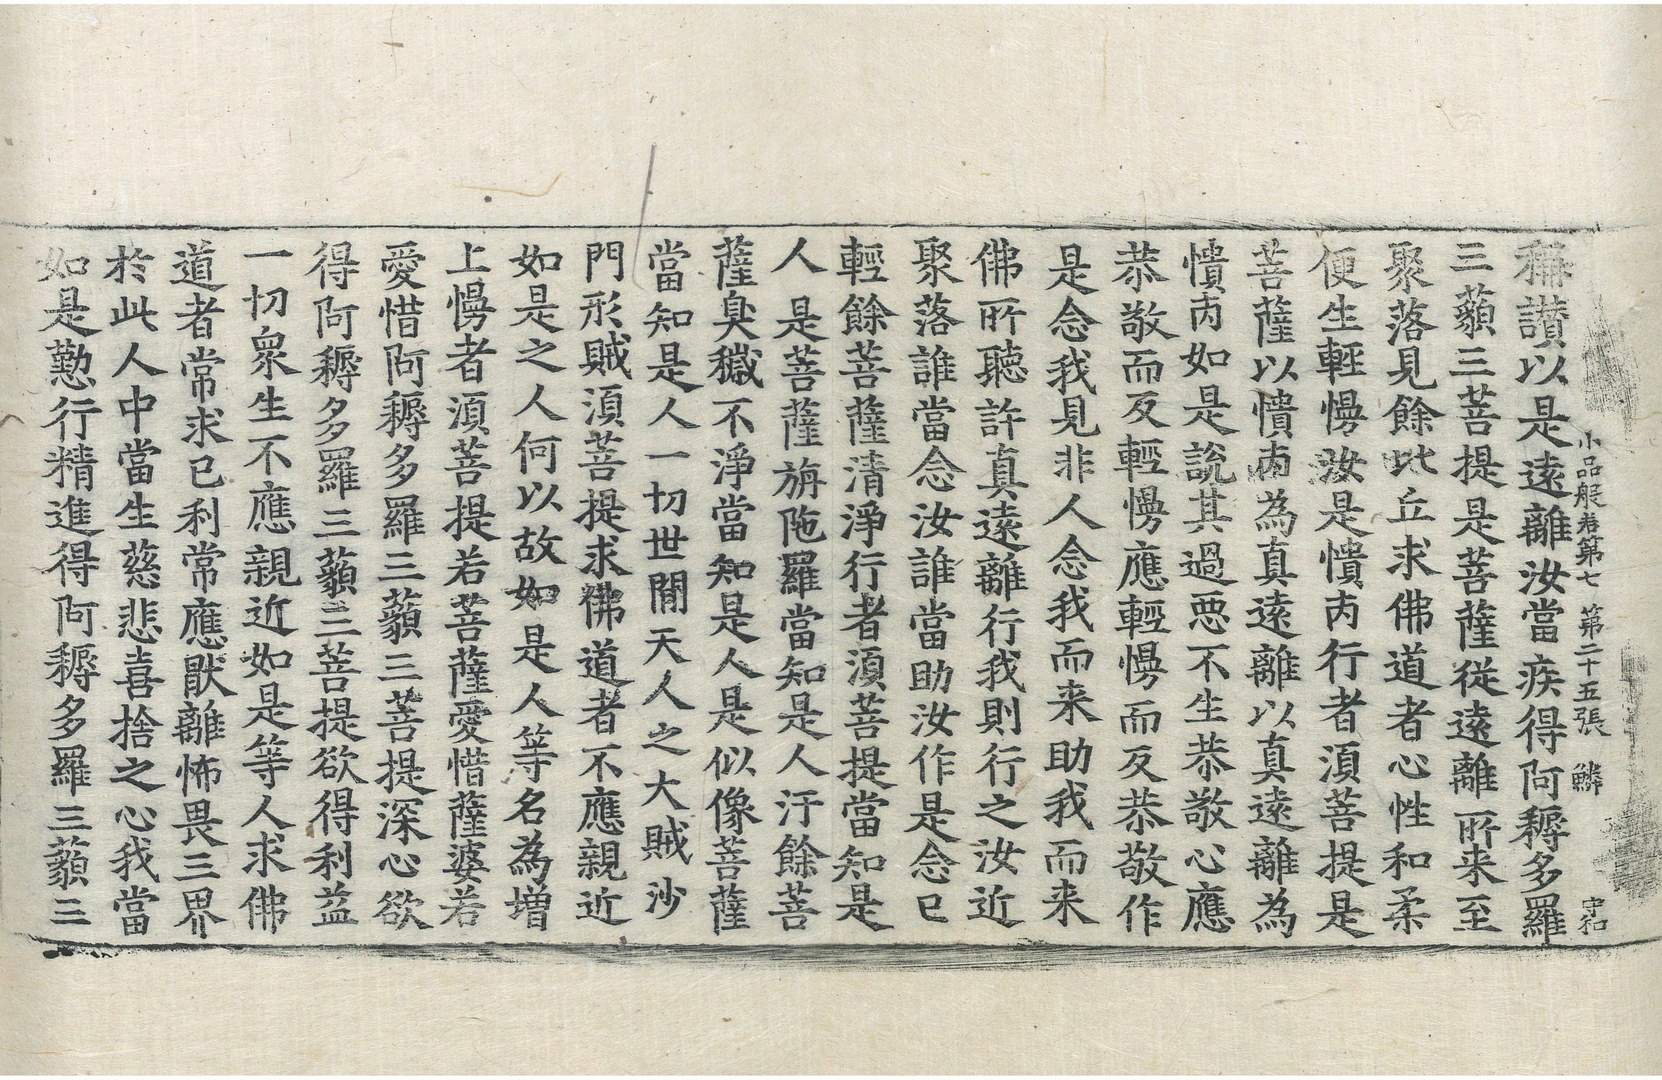 小品般若第七　第二十五張　鱗　守和
稱讃以是遠離汝當疾得阿耨多羅
三藐三菩提是菩薩從遠離所来至
聚落見餘比丘求佛道者心性和柔
便生輕慢汝是憒丙行者湏菩提是
菩薩以憒丙為真遠離以真遠離為
憒丙如是說其過惡不生恭敬心應
恭敬而反輕慢應輕慢而反恭敬作
是念我見非人念我而来助我而来
佛所聽許真遠離行我則行之汝近
聚落誰當念汝誰當助汝作是念已
輕餘菩薩清淨行者湏菩提當知是
人是菩薩旃陁羅當知是人汙餘菩
薩臭穢不淨當知是人是似像菩薩
當知是人一切世閒天人之大賊沙
門形賊湏菩提求佛道者不應親近
如是之人何以故如是人等名為增
上慢者湏菩提若菩薩愛惜薩婆若
愛惜阿耨多羅三藐三菩提深心欲
得阿耨多羅三藐三菩提欲得利益
一切衆生不應親近如是等人求佛
道者常求已利常應猒離怖畏三界
於此人中當生慈悲喜捨之心我當
如是懃行精進得阿耨多羅三藐三